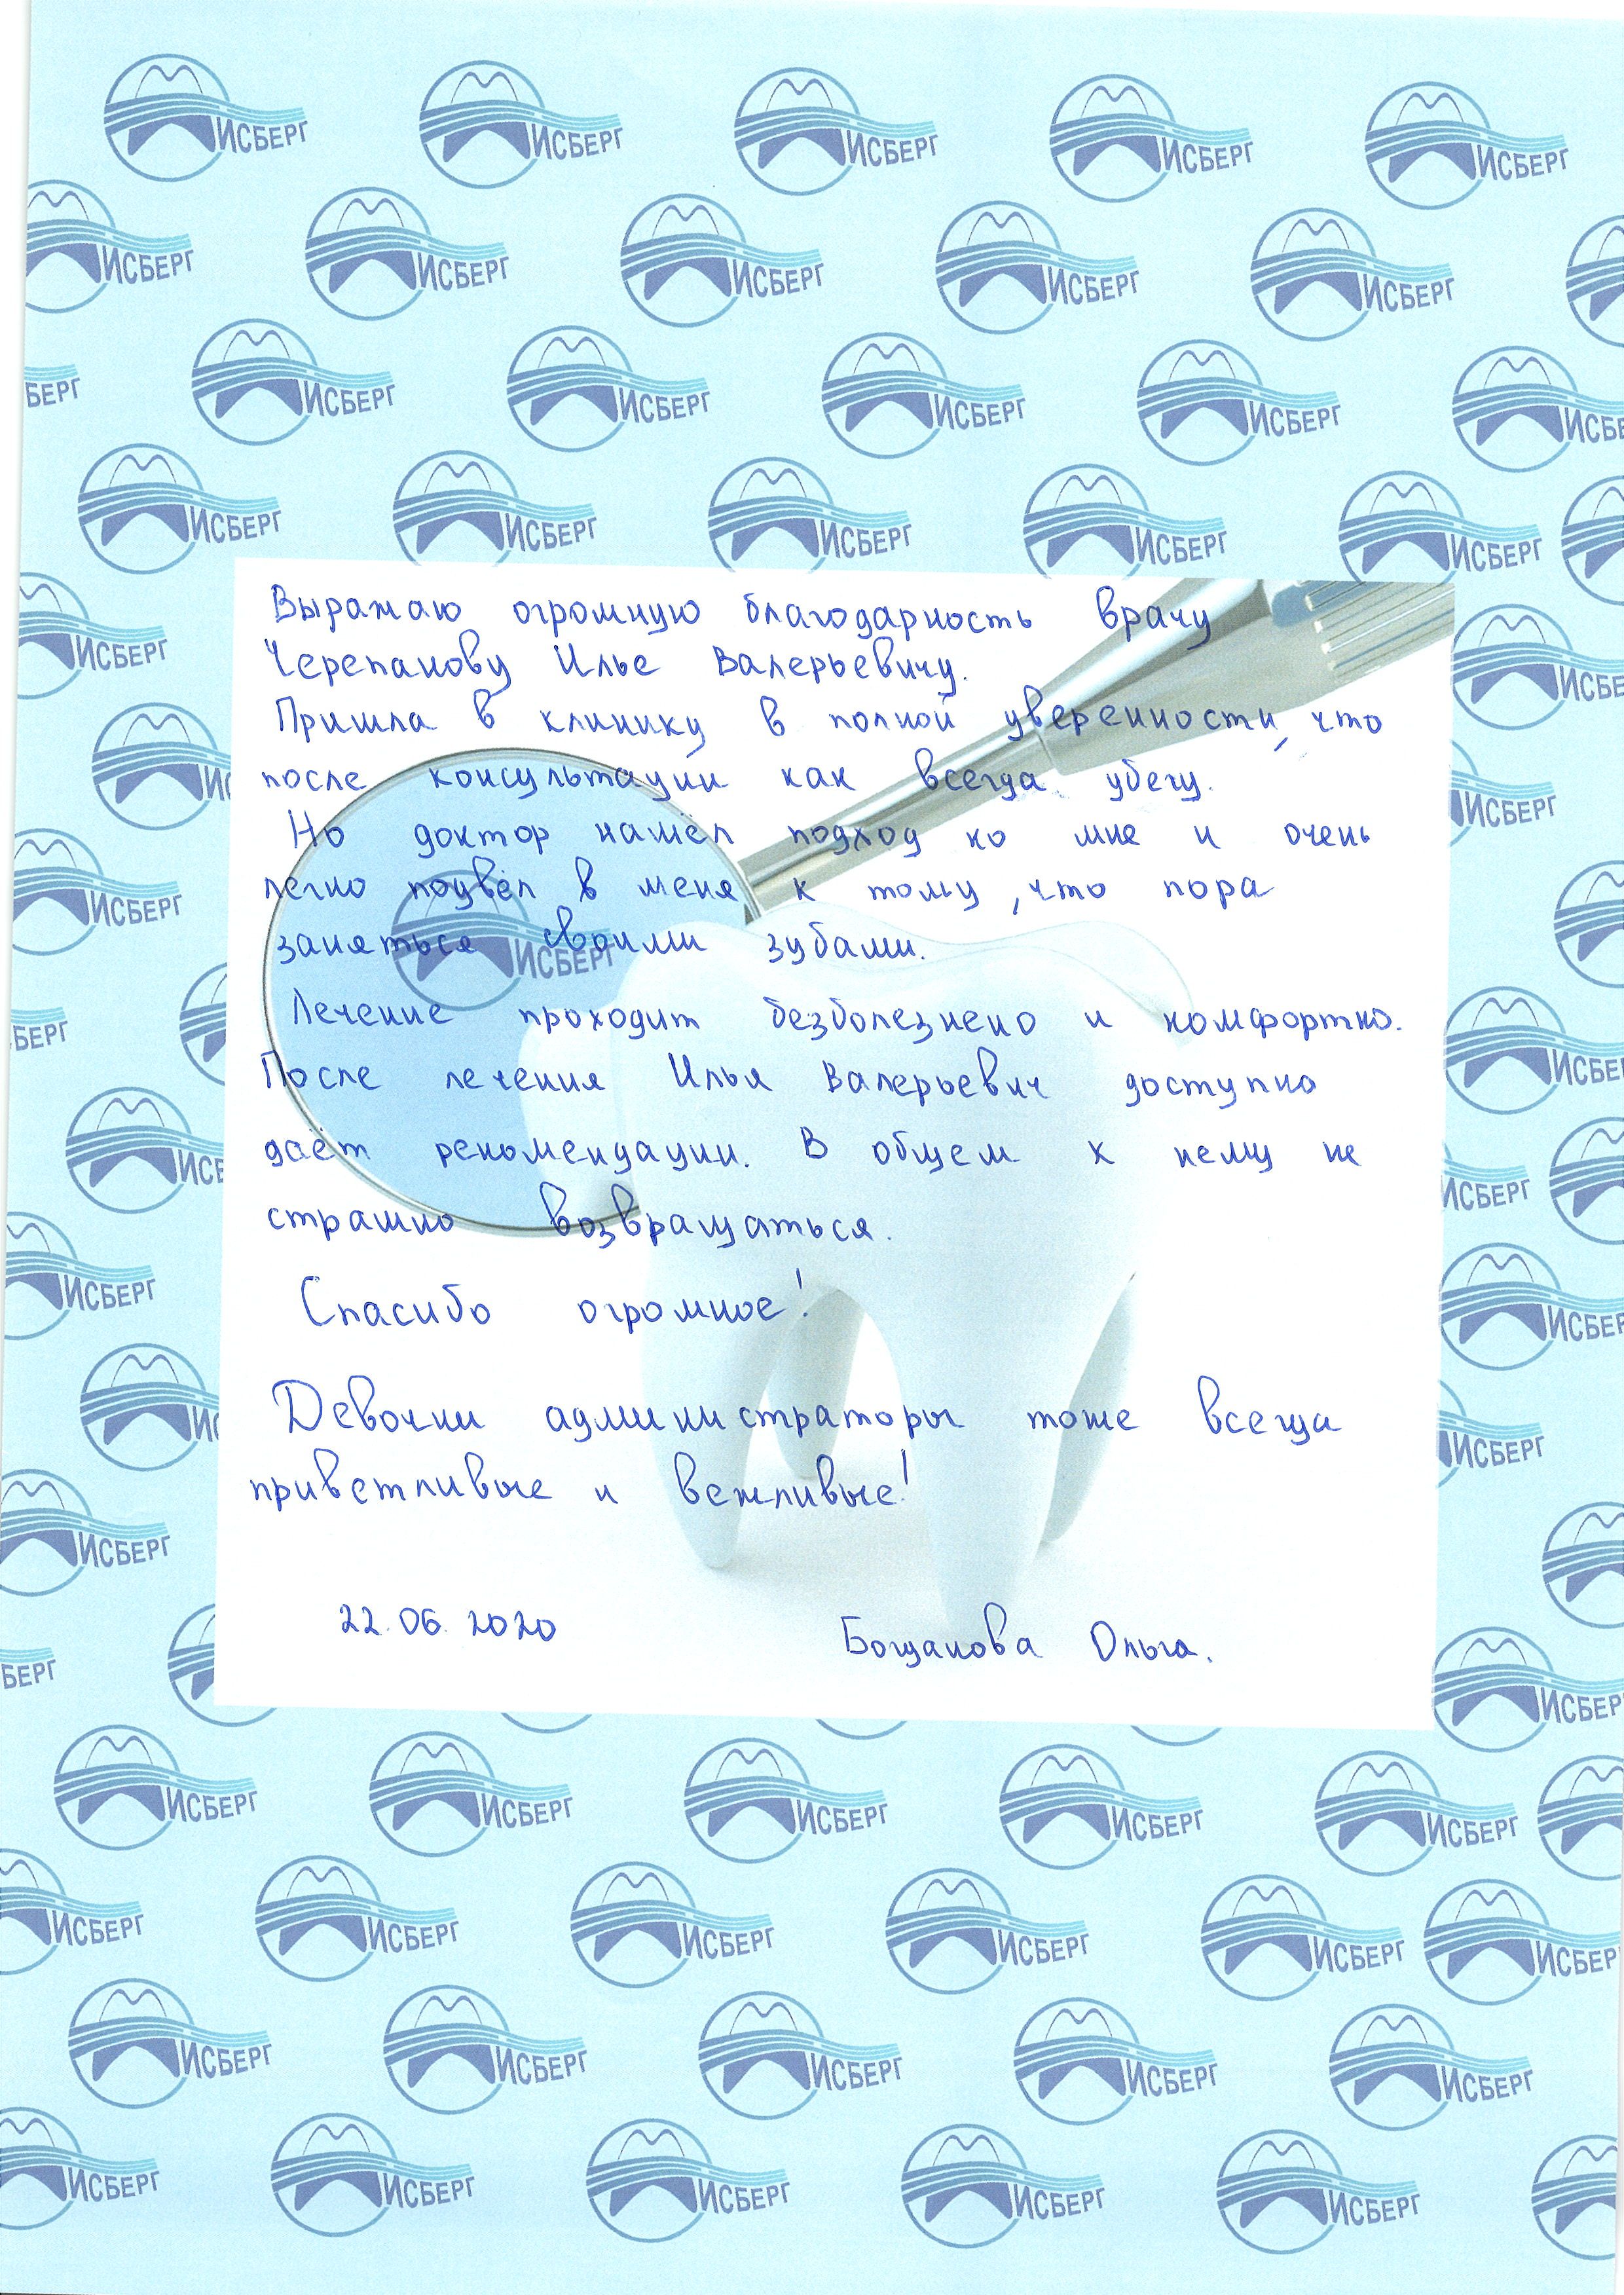 Выражаю огромную благодарность врачу
Черепанову Илье Валерьевичу.
Пришла в клинику в полной уверенности, что
после консультации как всегда убегу.
Но доктор нашёл подход ко мне и очень
легко подвёл меня к тому, что пора
заняться своими зубами.
Лечение проходит безболезнено и комфортно.
После лечения Илья Валерьевич доступно
даёт рекомендации. В общем к нему не
страшно возвращаться.
Спасибо огромное!
Девочки администраторы тоже всегда
приветливые и вежливые!
22.06.2020
Богданова Ольга.
ИСБЕРГ